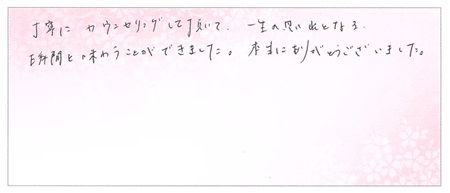 丁寧にカウンセリングして頂いて、一生の思い出となる
時間を味わうことができました。本当にありがとうございました。